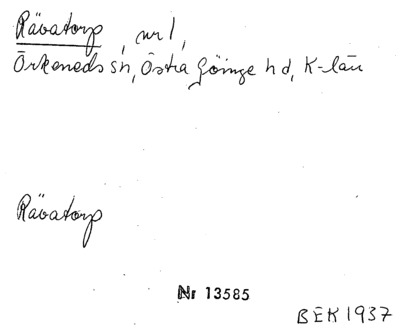 Rävatorp, nr 1,
Örkeneds sn, Östra Göinge hd, K-län
Rävatorp
Nr 13585
BEK 1937